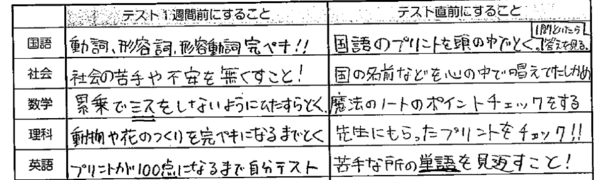 テスト1週間前にすること テスト直前にすること
国語 動詞、形容詞、形容動詞完ペキ!! 国語のプリントを頭の中でとく。 1問といたら答えを見る。
社会 社会の苦手や不安を無くすこと! 国の名前などを心の中で唱えてたしかめ
数学 累乗でミスをしないようにひたすらとく 魔法のノートのポイントチェックをする
理科 動物や花のつくりを完ペキになるまでとく 先生にもらったプリントをチェック!!
英語 プリントが100点になるまで自分テスト 苦手な所の単語を見返すこと!